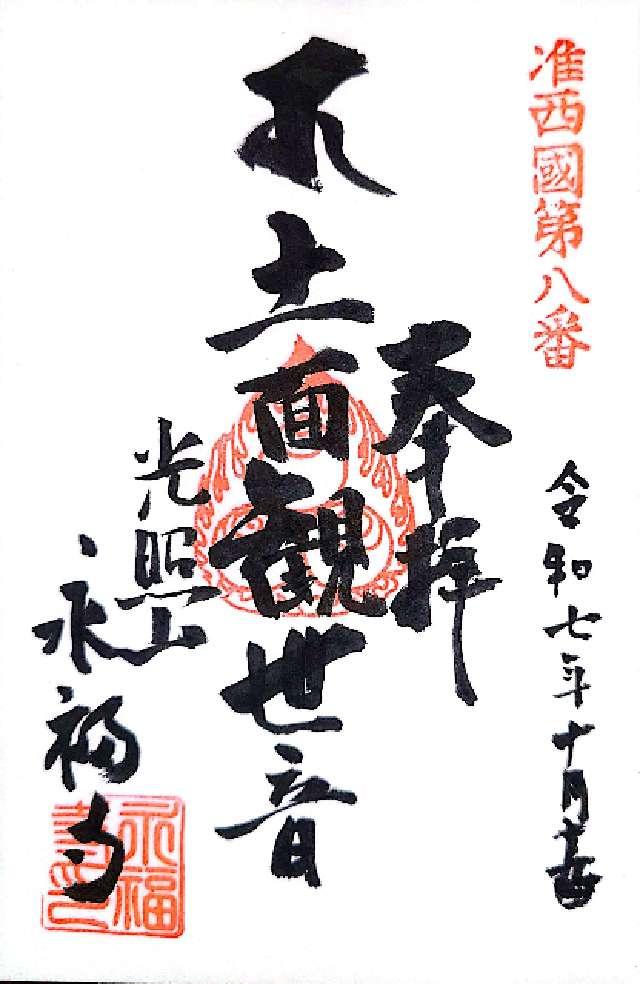 准西國第八番
令和七年十月
奉拝
十一面観世音
光照山
永福寺
永福